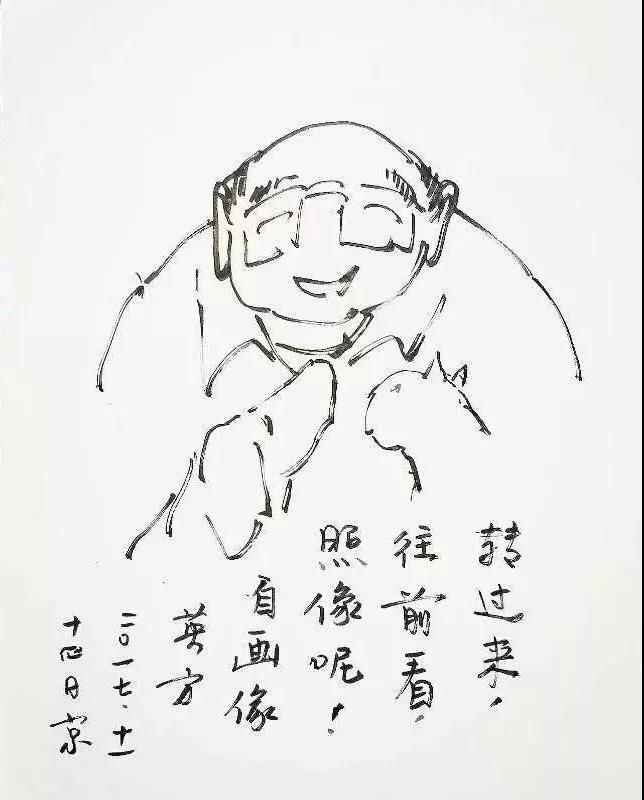 转过来！
往前看！
照像呢！
自画像
英方
二〇一七·十一
十四日京